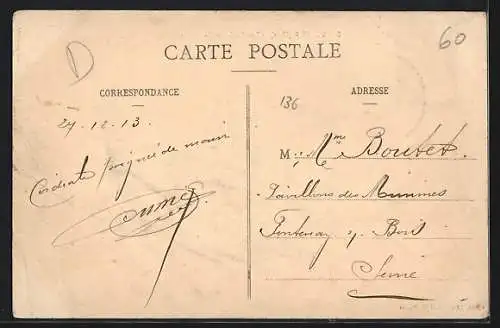 D
60
CARTE POSTALE
CORRESPONDANCE
ADRESSE
136
29-12-13.
Cordiale poignée de main
M. Mme Boutet.
Pavillons des Minimes
Fontenay s/ Bois
Seine